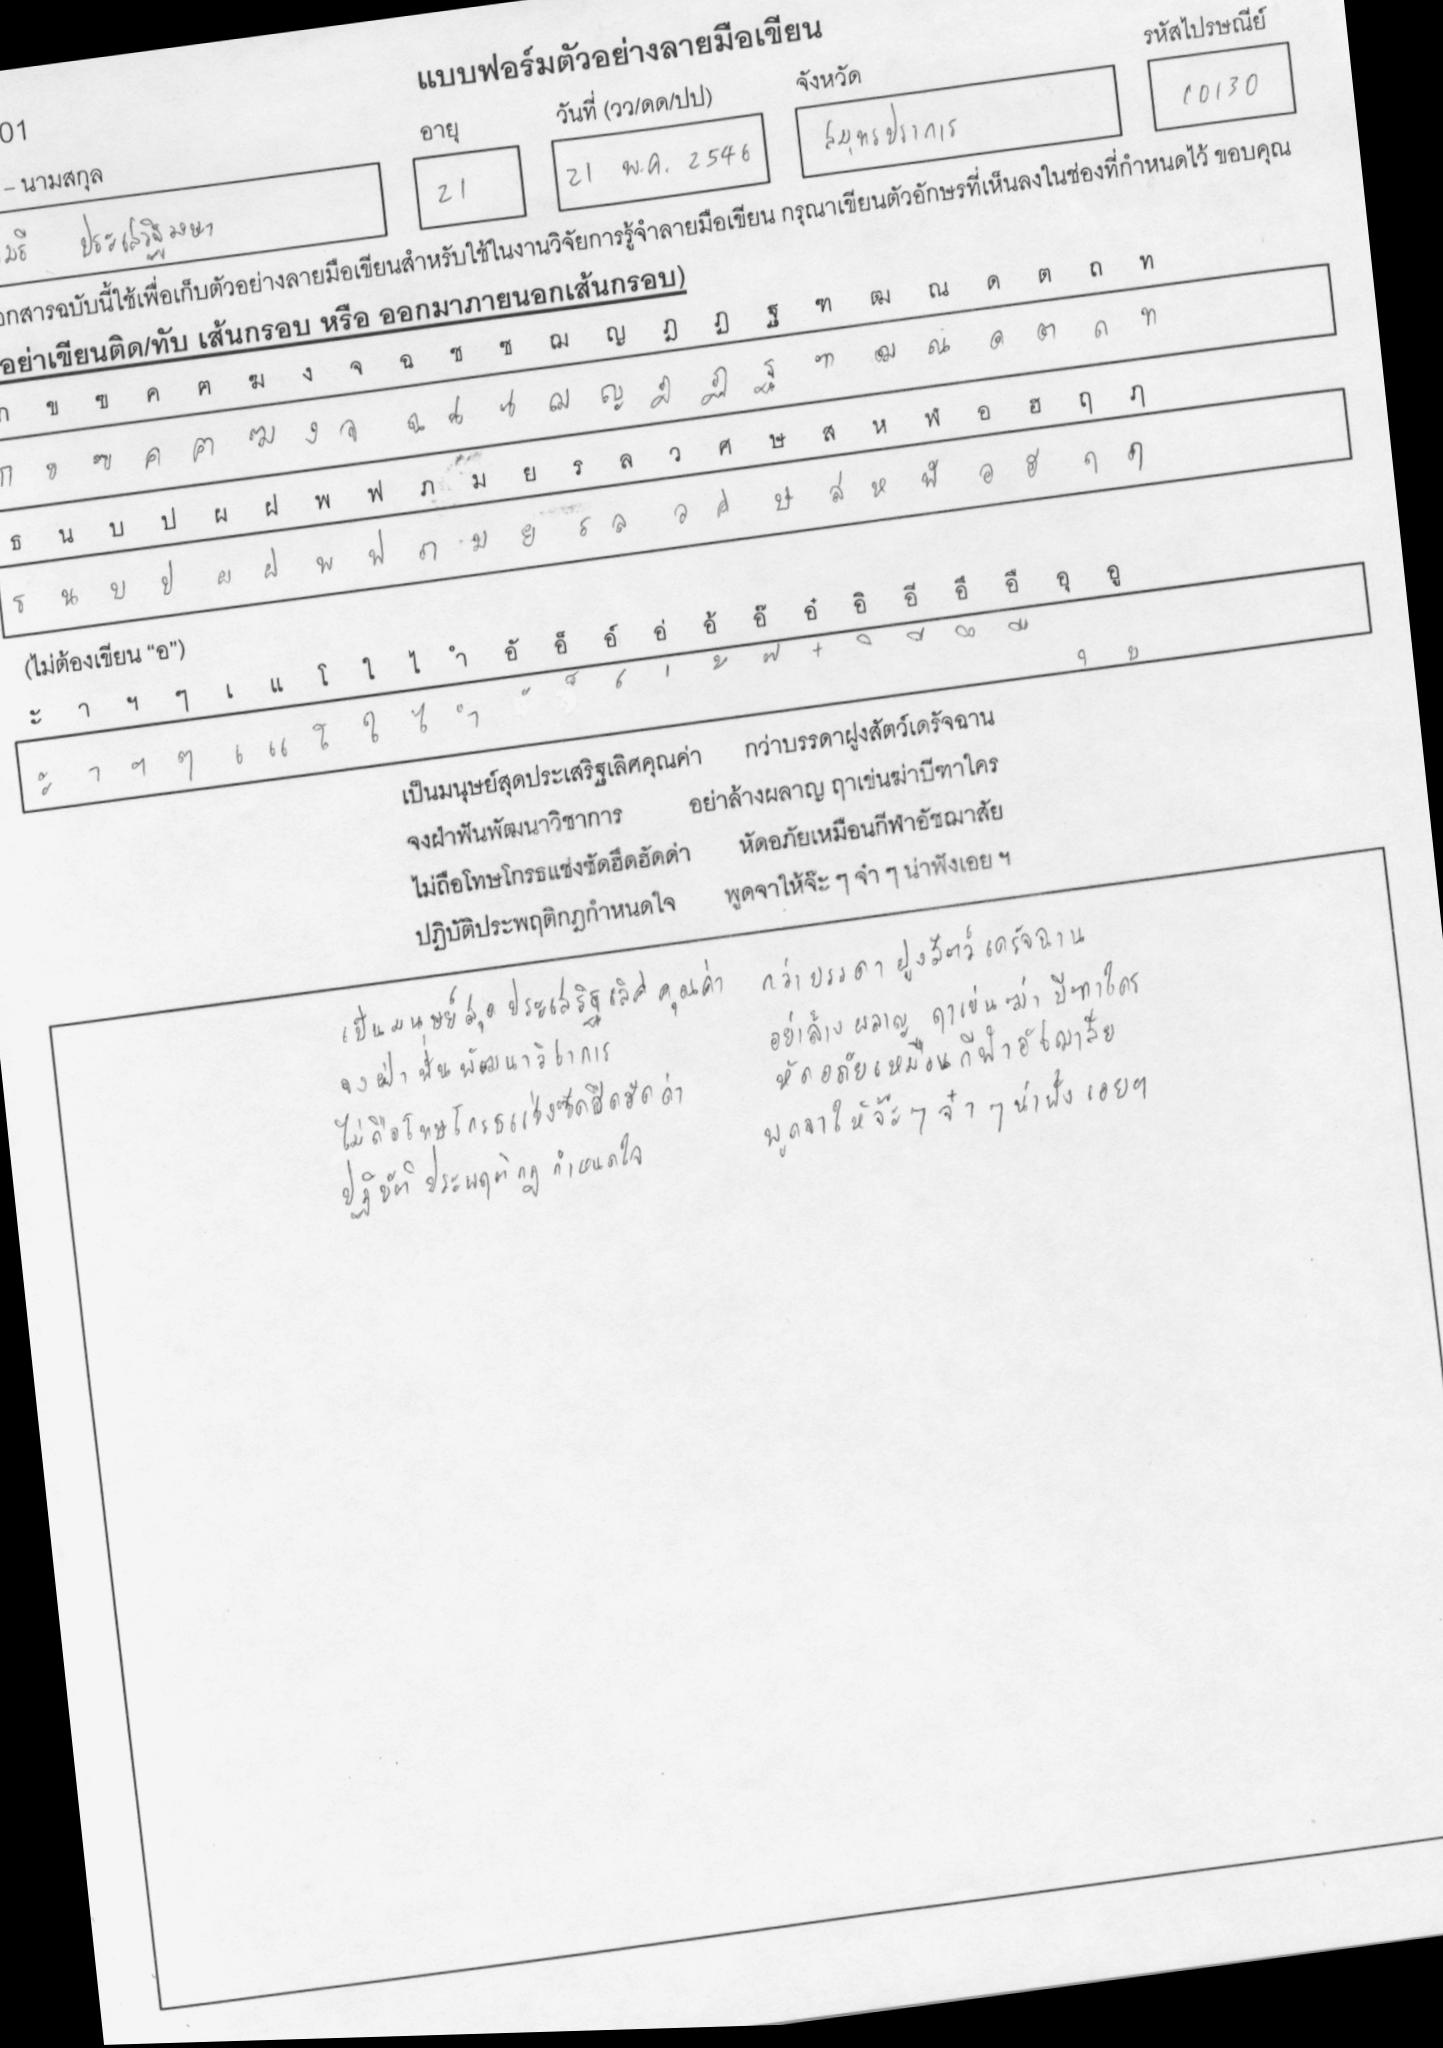 แบบฟอร์มตัวอย่างลายมือเขียน
01
– นามสกุล
อายุ
วันที่ (วว/ดด/ปป)
จังหวัด
รหัสไปรษณีย์
21
21 พ.ค. 2546
สมุทรปราการ
10130
อกสารฉบับนี้ใช้เพื่อเก็บตัวอย่างลายมือเขียนสำหรับใช้ในงานวิจัยการรู้จำลายมือเขียน กรุณาเขียนตัวอักษรที่เห็นลงในช่องที่กำหนดไว้ ขอบคุณ
อย่าเขียนติด/ทับ เส้นกรอบ หรือ ออกมาภายนอกเส้นกรอบ)
ก ข ฃ ค ฅ ฆ ง จ ฉ ช ซ ฌ ญ ฎ ฏ ฐ ฑ ฒ ณ ด ต ถ ท
ก ข ฃ ค ฅ ฆ ง จ ฉ ช ซ ฌ ญ ฎ ฏ ฐ ฑ ฒ ณ ด ต ถ ท
ธ น บ ป ผ ฝ พ ฟ ภ ม ย ร ล ว ศ ษ ส ห ฬ อ ฮ ฤ ฦ
ธ น บ ป ผ ฝ พ ฟ ภ ม ย ร ล ว ศ ษ ส ห ฬ อ ฮ ฤ ฦ
(ไม่ต้องเขียน “อ”)
ะ า ฯ ๆ เ แ โ ใ ไ ำ อั อ็ อ์ อ่ อ้ อ๊ อ๋ อิ อี อึ อื อุ อู
ะ า ฯ ๆ เ แ โ ใ ไ ำ ั ็ ์ ่ ้ ๊ ๋ ิ ี ึ ื ุ ู
เป็นมนุษย์สุดประเสริฐเลิศคุณค่า กว่าบรรดาฝูงสัตว์เดรัจฉาน
จงฝ่าฟันพัฒนาวิชาการ อย่าล้างผลาญ ฤาเข่นฆ่าบีฑาใคร
ไม่ถือโทษโกรธแช่งซัดฮึดฮัดด่า หัดอภัยเหมือนกีฬาอัชฌาสัย
ปฏิบัติประพฤติกฎกำหนดใจ พูดจาให้จ๊ะ ๆ จ๋า ๆ น่าฟังเอย ฯ
เป็นมนุษย์สุดประเสริฐเลิศคุณค่า กว่าบรรดาฝูงสัตว์เดรัจฉาน
จงฝ่าฟันพัฒนาวิชาการ อย่าล้างผลาญ ฤาเข่นฆ่าบีฑาใคร
ไม่ถือโทษโกรธแช่งซัดฮึดฮัดด่า หัดอภัยเหมือนกีฬาอัชฌาสัย
ปฏิบัติประพฤติกฎกำหนดใจ พูดจาให้จ๊ะ ๆ จ๋า ๆ น่าฟังเอยฯ